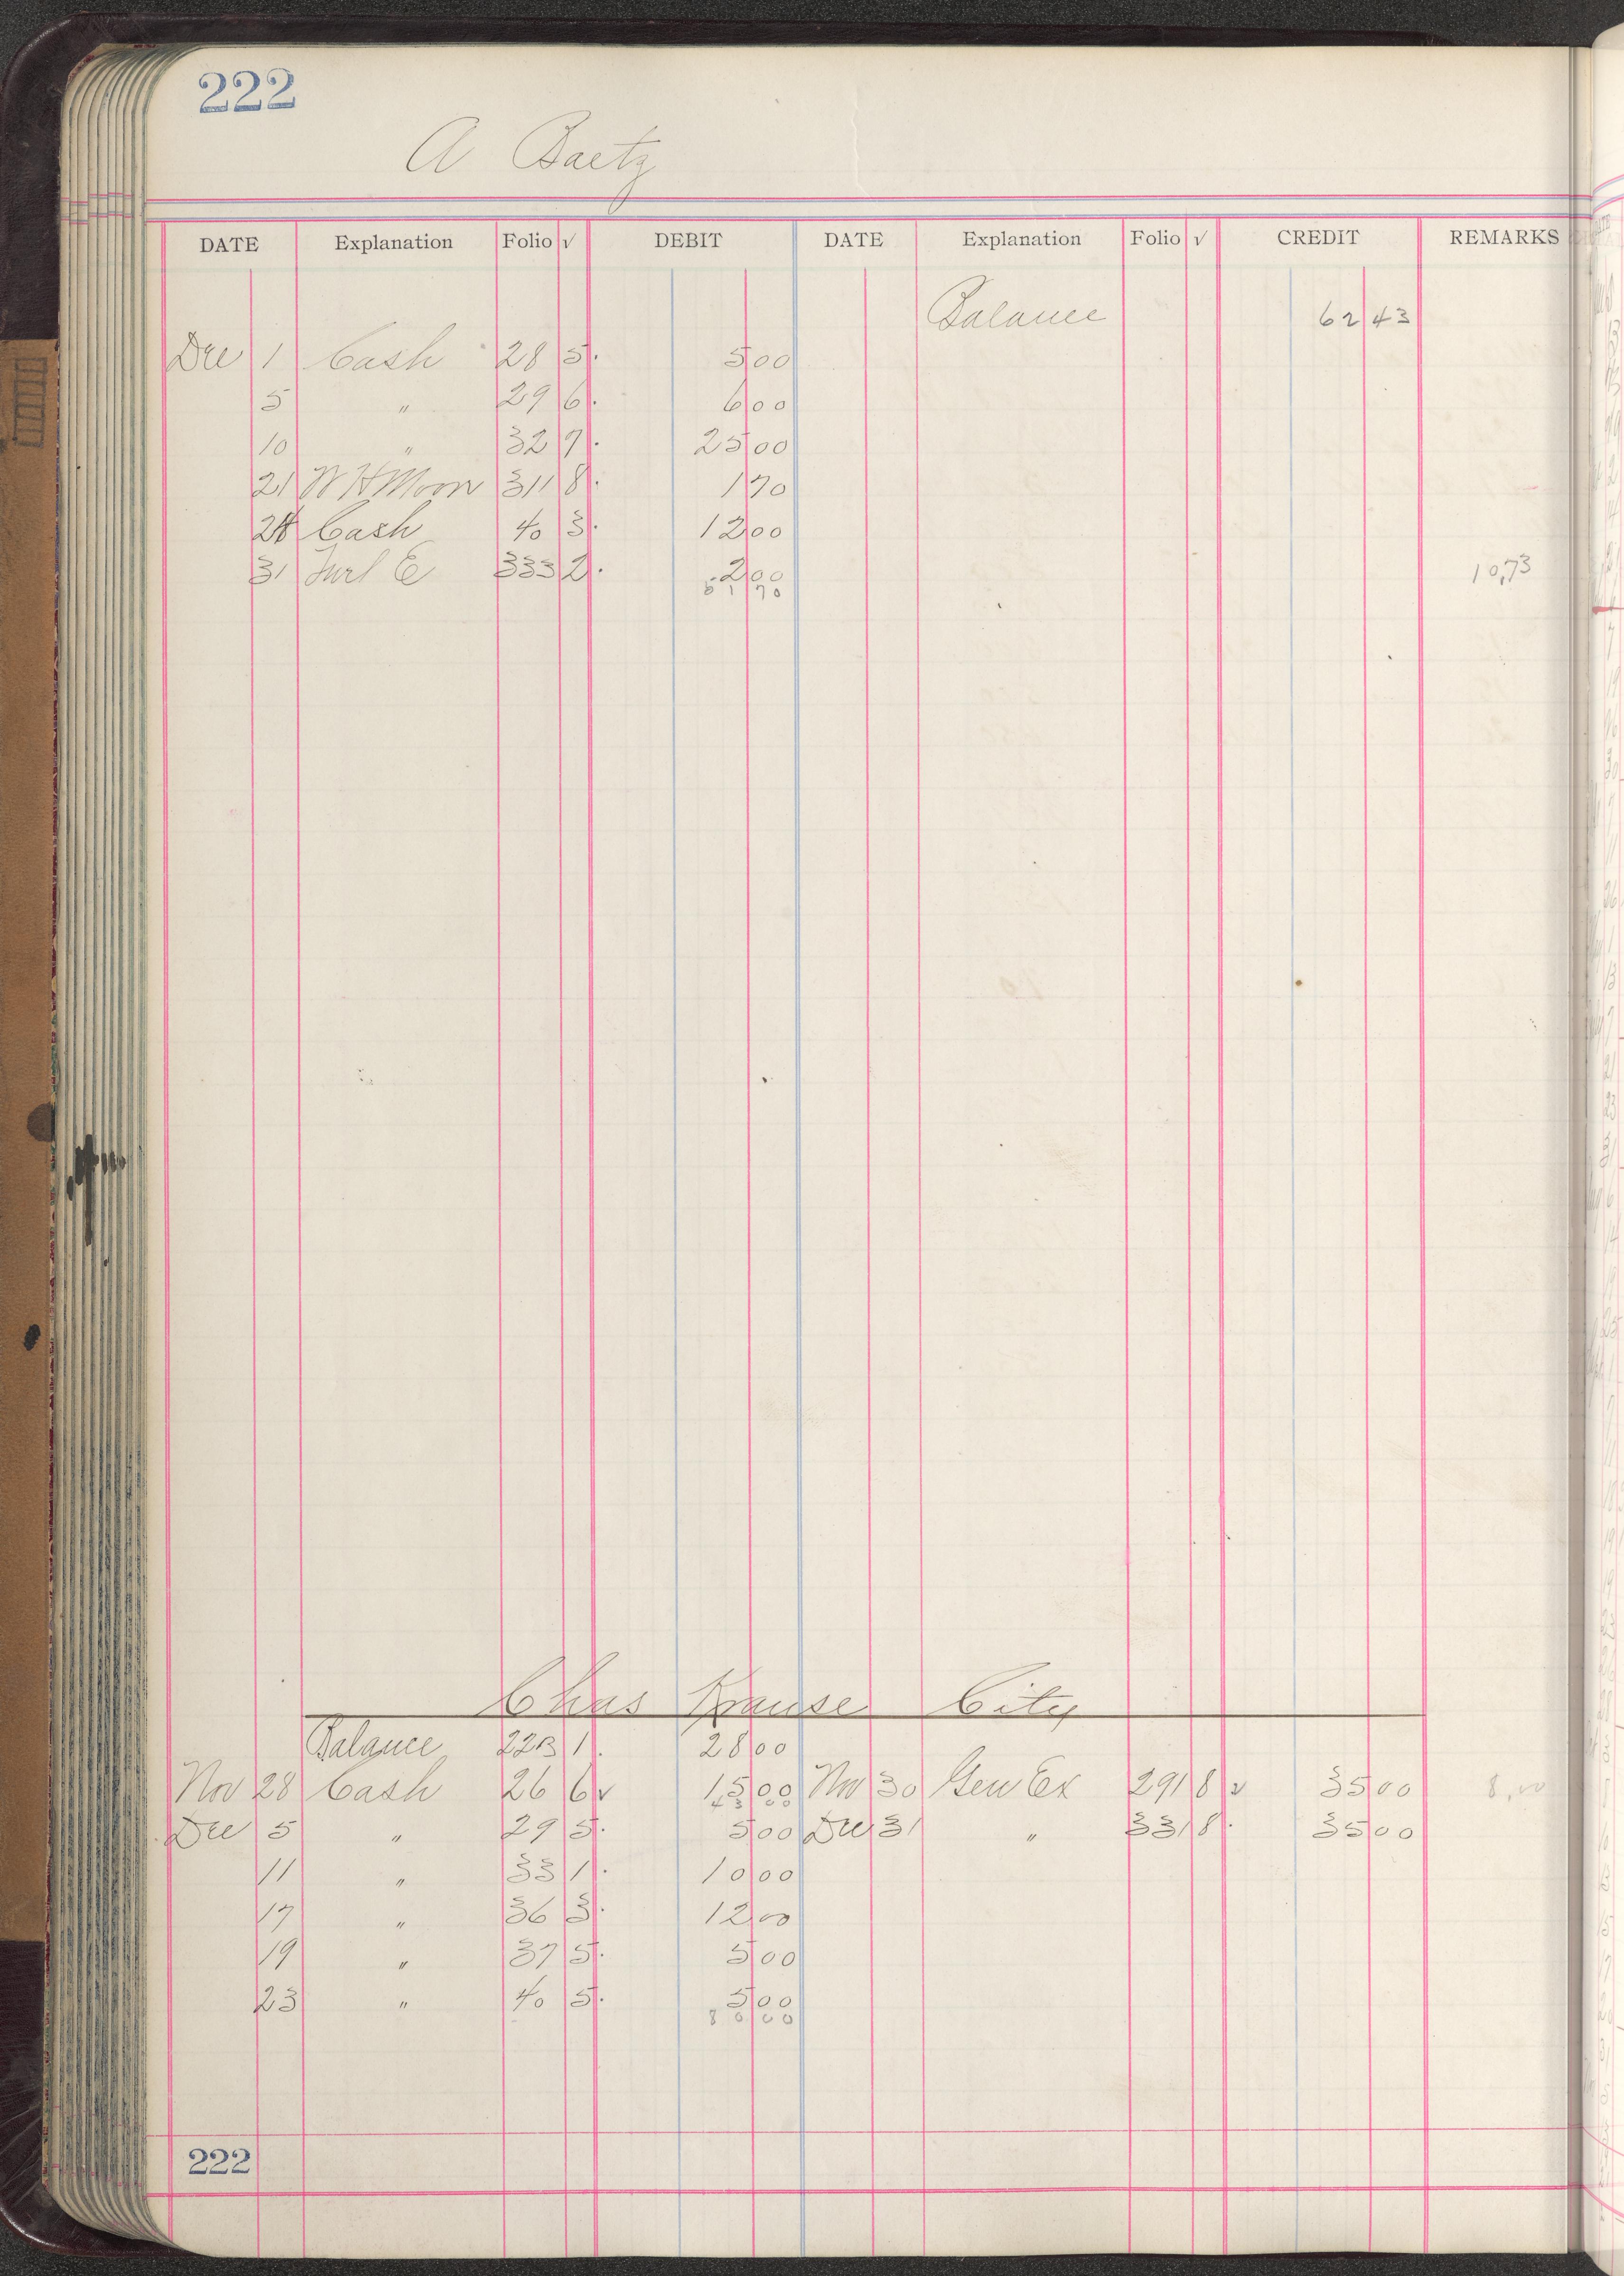 222
A Baetz
DATE Explanation Folio √ DEBIT DATE Explanation Folio √ CREDIT REMARKS
Balance 62 43
Dec 1 Cash 28 5. 5 00
5 " 29 6. 6 00
10 " 32 7. 25 00
21 W H Moon 311 8. 1 70
24 Cash 40 3. 12 00
31 E 333 2. 2 00 10,73
51 70
Chas Krause City
Balance 223 1. 28 00
Nov 28 Cash 26 6 v 15 00 Nov 30 Gen Ex 291 8 v 35 00 8,00
43 00
Dec 5 " 29 5. 5 00 Dec 31 " 331 8. 35 00
11 " 33 1. 10 00
17 " 36 3. 12 00
19 " 37 5. 5 00
23 " 40 5. 5 00
80 00
222